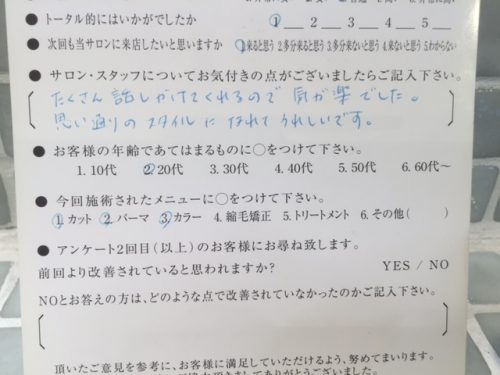 ● トータル的にはいかがでしたか 1__ 2__ 3__ 4__ 5__
● 次回も当サロンに来店したいと思いますか 1.来ると思う 2.多分来ると思う 3.多分来ないと思う 4.来ないと思う 5.わからない
● サロン・スタッフについてお気付きの点がございましたらご記入下さい。
たくさん話しかけてくれるので気が楽でした。
思い通りのスタイルになれてうれしいです。
● お客様の年齢であてはまるものに○をつけて下さい。
1.10代 2.20代 3.30代 4.40代 5.50代 6.60代～
● 今回施術されたメニューに○をつけて下さい。
1.カット 2.パーマ 3.カラー 4.縮毛矯正 5.トリートメント 6.その他( )
● アンケート2回目(以上)のお客様にお尋ね致します。
前回より改善されていると思われますか? YES / NO
NOとお答えの方は、どのような点で改善されていなかったのかご記入下さい。
頂いたご意見を参考に、お客様に満足していただけるよう、努めてまいります。